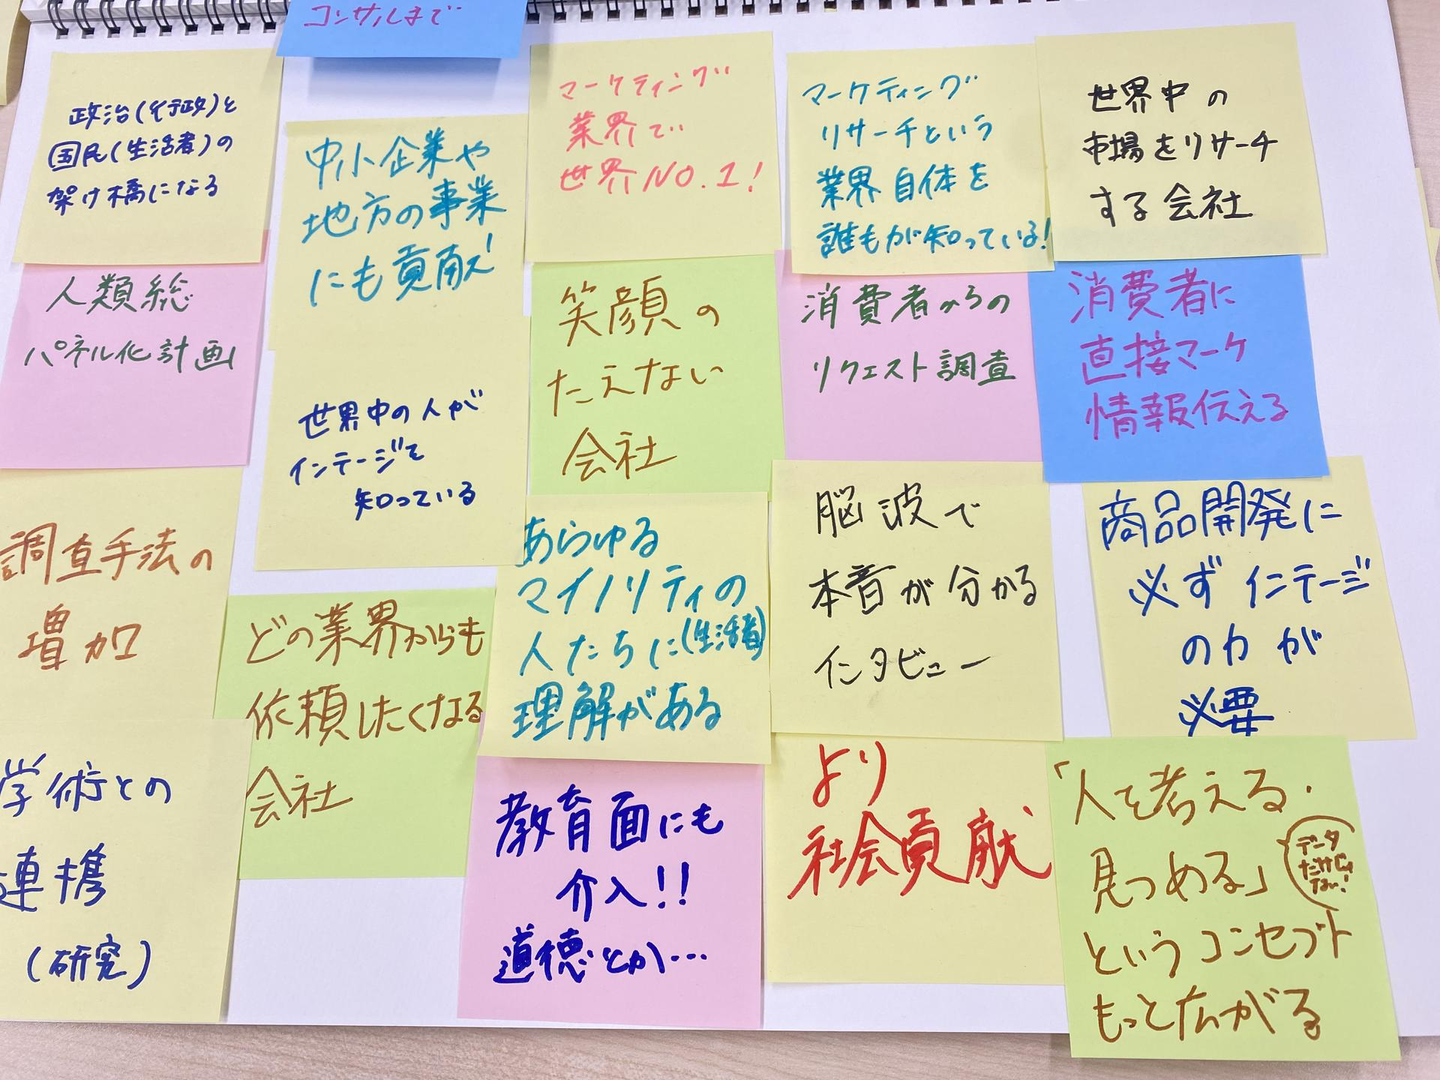 コンサルまで
政治(行政)と
国民(生活者)の
架け橋になる
中小企業や
地方の事業
にも貢献!
マーケティング
業界で
世界NO.1!
マーケティング
リサーチという
業界自体を
誰もが知っている!
世界中の
市場をリサーチ
する会社
人類総
パネル化計画
世界中の人が
インテージを
知っている
笑顔の
たえない
会社
消費者からの
リクエスト調査
消費者に
直接マーケ
情報伝える
調査手法の
増加
どの業界からも
依頼したくなる
会社
あらゆる
マイノリティの
人たちに(生活者)
理解がある
脳波で
本音が分かる
インタビュー
商品開発に
必ずインテージ
の力が
必要
学術との
連携
(研究)
教育面にも
介入!!
道徳とか…
より
社会貢献
「人を考える・
見つめる」
データ
だけじゃ
ない!
というコンセプト
もっと広がる